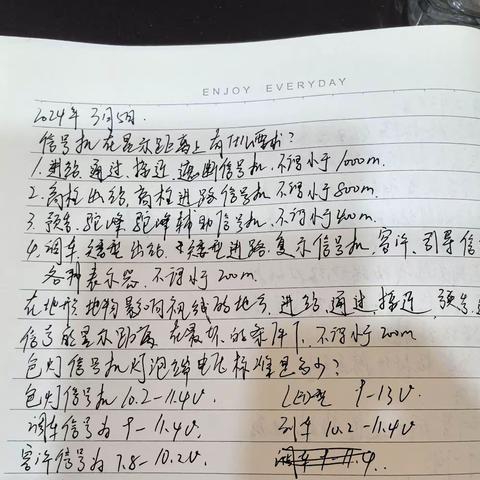 ENJOY EVERYDAY
2024年3月5日.
信号机在显示距离上有什么要求?
1.进站.通过.接近.遮断信号机.不得小于1000m.
2.高柱出站.高柱进路信号机.不得小于800m.
3.预告.驼峰.驼峰辅助信号机.不得小于400m.
4.调车.矮型出站.矮型进路.复示信号机.容许.引导信
各种表示器.不得小于200m.
在地形.地物影响视线的地方.进站.通过.接近.预告.
信号的显示距离.在最坏的条件下.不得小于200m
色灯信号机灯泡端电压标准是多少?
色灯信号机10.2-11.4V. LED型 9-13V.
调车信号为9-11.4V. 列车10.2-11.4V
容许信号为7.8-10.2V. 调车9-11.4.